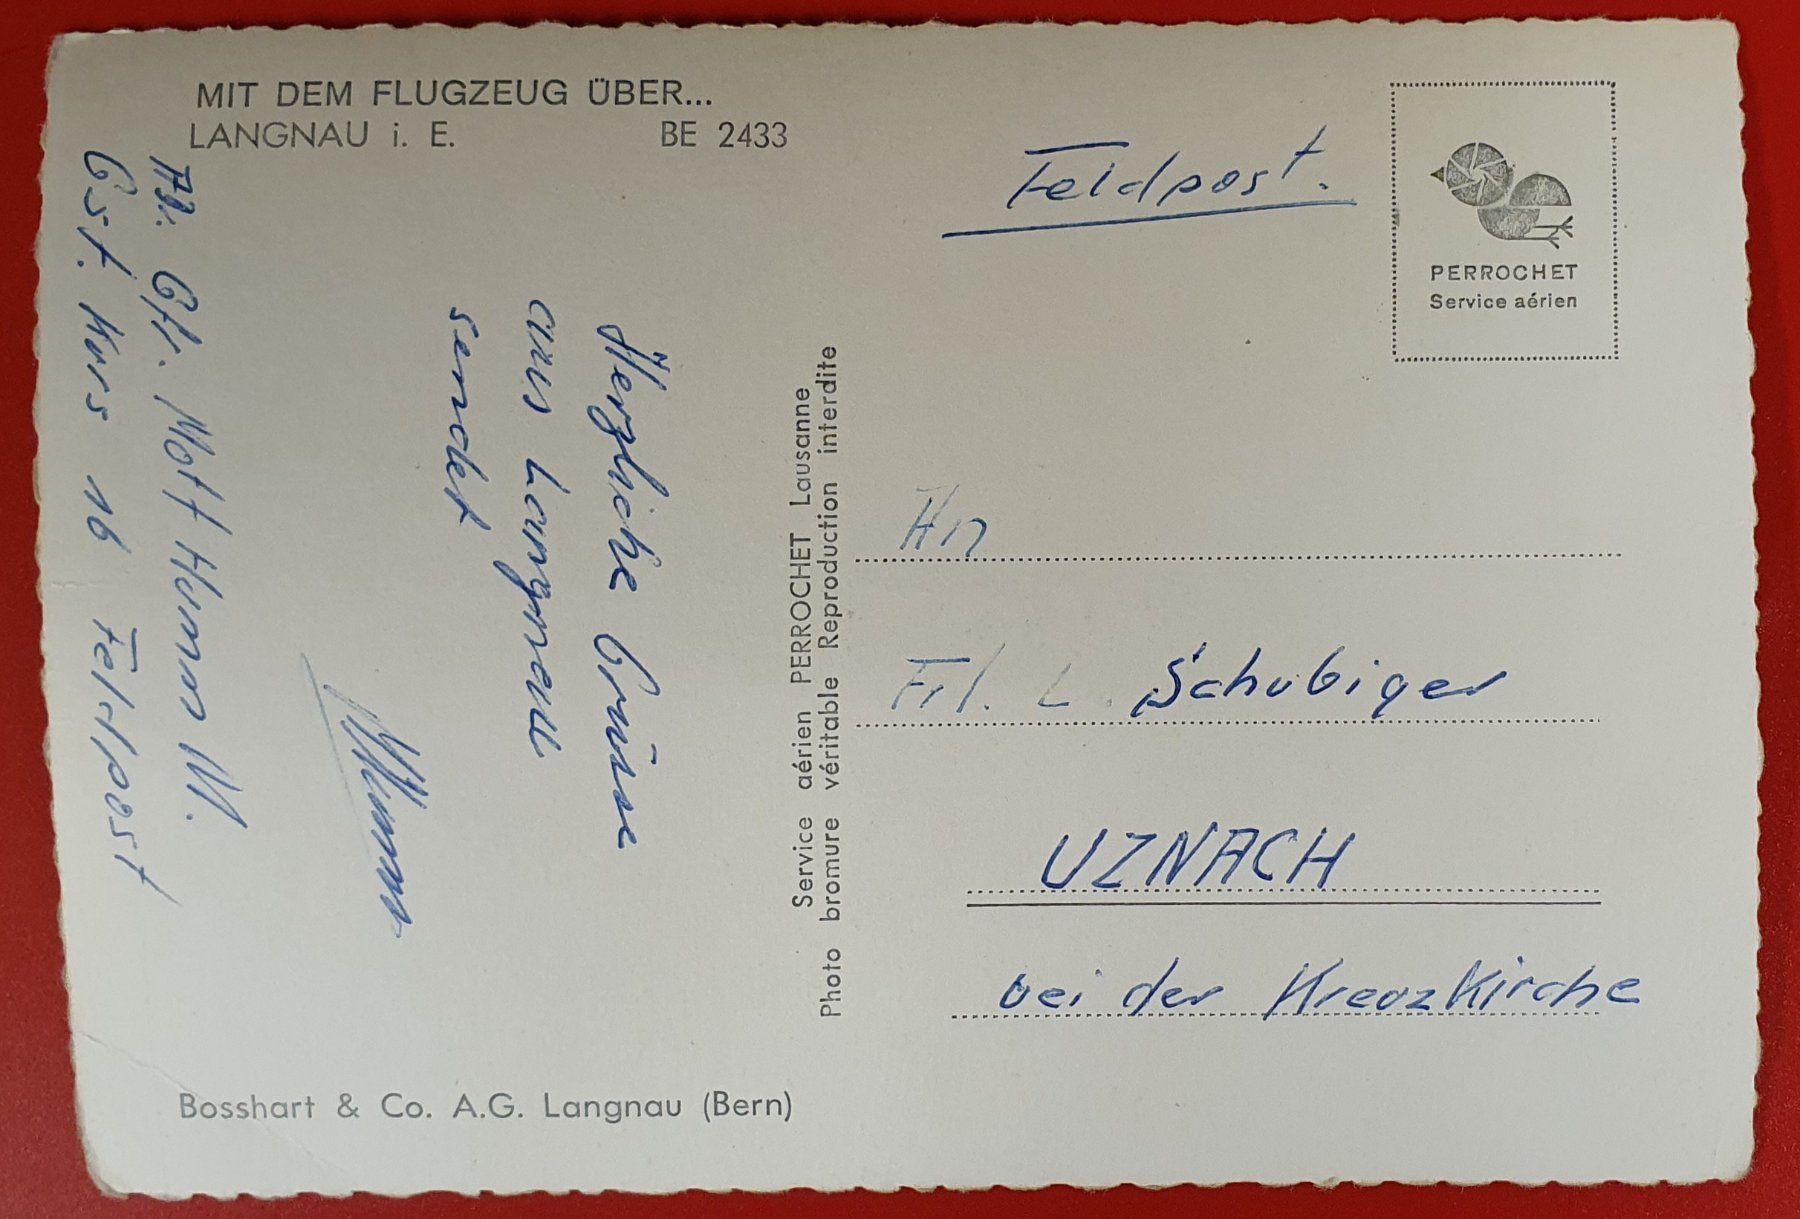 MIT DEM FLUGZEUG ÜBER...
LANGNAU i. E. BE 2433
Feldpost.
PERROCHET
Service aérien
Herzliche Grüsse
aus Langnau
sendet
Gfr. Mot
Gst. Kurs 16 Feldpost
Service aérien PERROCHET Lausanne
Photo bromure véritable Reproduction interdite
An
Frl. L. Schubiger
UZNACH
bei der Kreuzkirche
Bosshart & Co. A.G. Langnau (Bern)